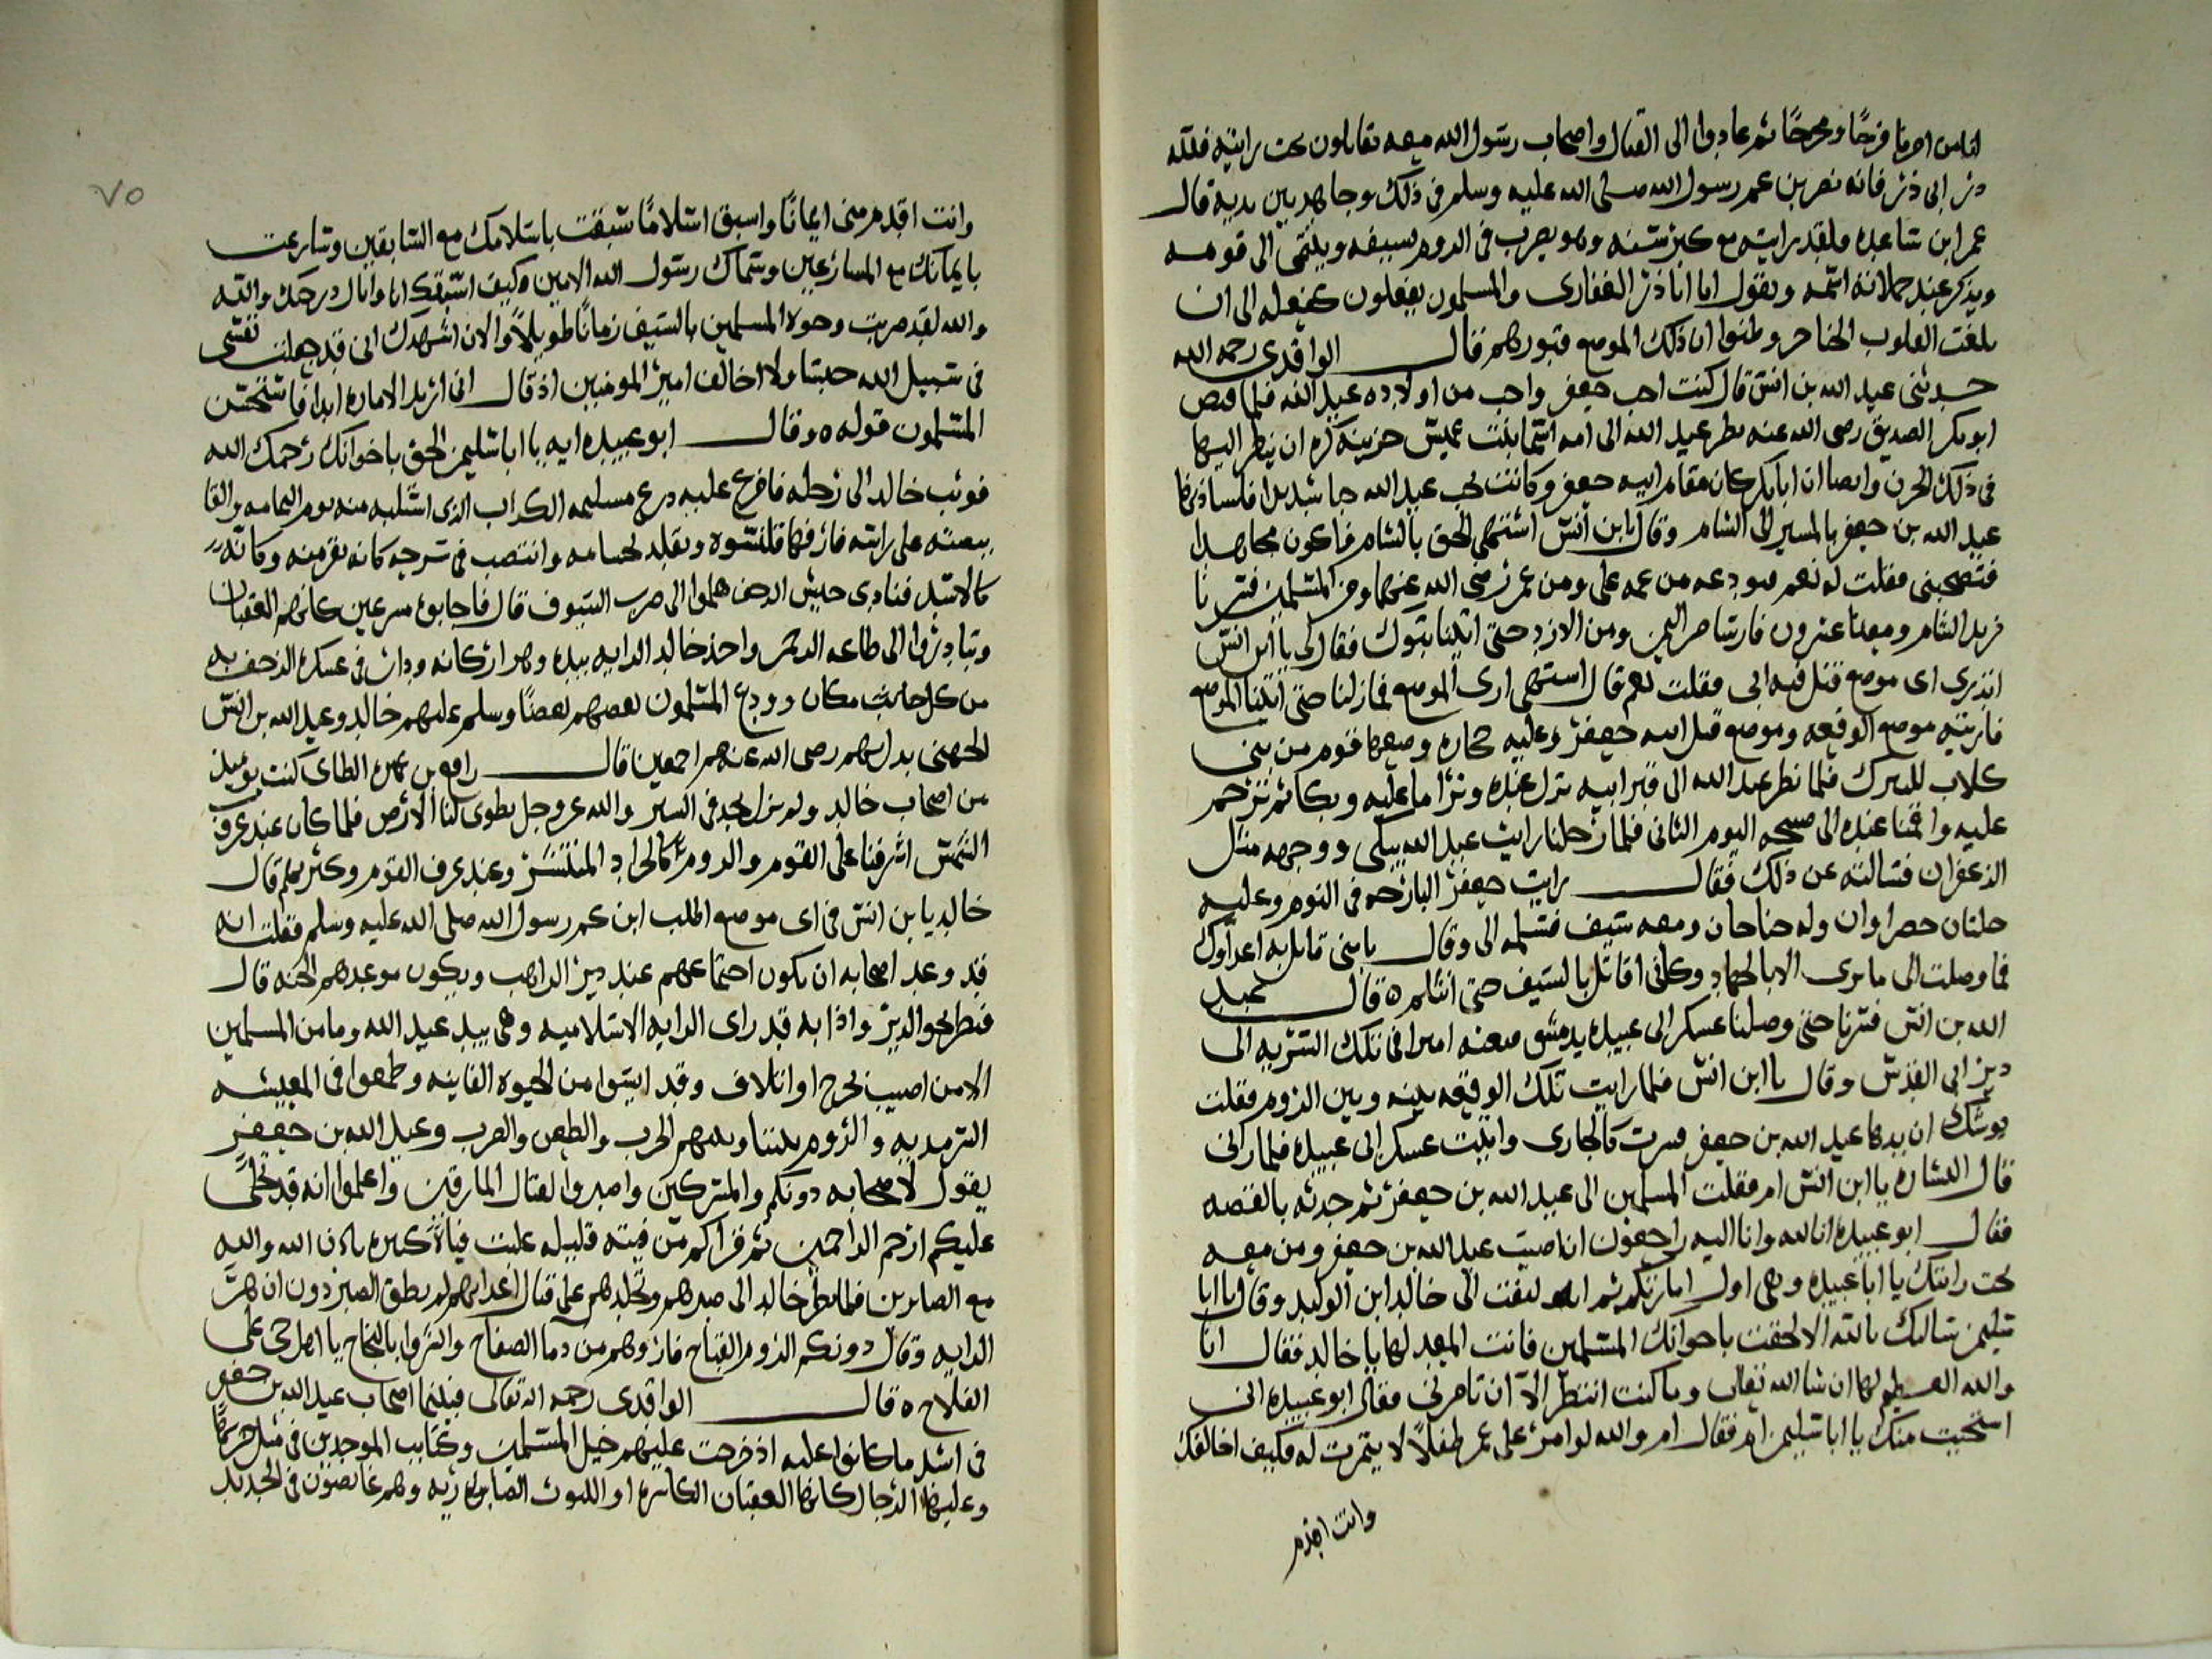 لناس امرنا فرجًا ومخرجًا ثم عادوا الى القتال واصحاب رسول الله معه يقاتلون تحت رايته فلله
در ابى ذر فانه نصر بن عم رسول الله صلى الله عليه وسلم فى ذلك وجاهد بين يديه قال
عمر ابن ساعده ولقد رايته مع كبر سنه وهو يضرب فى الروم بسيفه وينتمى الى قومه
ويذكر عند حملاته اسمه ويقول انا ابا ذر الغفارى والمسلمون يفعلون كفعله الى ان
بلغت القلوب الحناجر وظنوا ان ذلك الموضع قبورهم فقال الواقدى رحمه الله
حدثنى عبد الله بن انس قال كنت احب جعفر واحب من اولاده عبد الله فلما قبض
ابو بكر الصديق رضى الله عنه نظر عبد الله الى امه اسما بنت عميس حزينه كره ان ينظر اليها
فى ذلك الحزن وايضا ان ابا بكر كان مقام ابيه جعفر وكانت تحب عبد الله حبا شديدا فاستاذنها
عبد الله بن جعفر بالمسير الى الشام وقال يا ابن انس اشتهى الحق بالشام فاكون مجاهدا
فتصحبنى فقلت له نعم فودعه من عمه على ومن عمر رضى الله عنهما ومن المسلمين فسرنا
نريد الشام ومعنا عشرون فارسا من اليمن ومن الازد حتى اتينا تبوك فقال لى يا ابن انس
اتدرى اى موضع قتل فيه ابى فقلت نعم قال اشتهى ارى الموضع فما زلنا حتى اتينا الموضع
فاريته موضع الوقعه وموضع قتل ابيه جعفر وعليه حجاره وضعها قوم من بنى
كلاب للتبرك فلما نظر عبد الله الى قبر ابيه نزل عنده وترا ما عليه وبكا ثم ترحم
عليه واقمنا عنده الى صبيحه اليوم الثانى فلما رحلنا رايت عبد الله يبكى ووجهه مثل
الزعفران فسالته عن ذلك فقال رايت جعفر البارحه فى النوم وعليه
حلتان خضراوان وله جناحان ومعه سيف فسلمه الى وقال يا بنى قاتل به اعداوك
فما وصلت الى ما ترى الا بالجهاد وكانى اقاتل بالسيف حتى انثلم ٥ قال عبد
الله بن انس فسرنا حتى وصلنا عسكر ابى عبيده بدمشق فبعثه اميرا فى تلك السريه الى
دير ابى القدس وقال يا ابن انس فلما رايت تلك الوقعه بينه وبين الروم فقلت
يوشك ان يدها عبد الله بن جعفر فسرت كالجارى واتيت عسكر ابى عبيده فلما رانى
قال ابشاره يا ابن انس ام فقلت المسلمين الى عبد الله بن جعفر ثم حدثه بالقصه
فقال ابو عبيده انا لله وانا اليه راجعون ان اصيب عبد الله بن جعفر ومن معه
تحت رايتك يا ابا عبيده وهى اول امارتكم ثم انه لتفت الى خالد ابن الوليد وقال يا ابا
سليمن سالتك بالله الا لحقت باخوانك المسلمين فانت المعد لها يا خالد فقال انا
والله العظيم لها ان شا الله تعالى وما كنت انتظر الا ان تامرنى فقال ابو عبيده انى
استحيت منك يا ابا سليمن فقال ام والله لو امر على عمر طفلا لا يتمرت له فكيف اخالفك
وانت اقدم
٧٥
وانت اقدم منى ايمانًا واسبق اسلامًا سبقت باسلامك مع السابقين وسارعت
بايمانك مع المسارعين وسماك رسول الله الامين وكيف اسبقك انا وانال درجتك والله
والله لقد ضربت وجوه المسلمين بالسيف زمانًا طويلاً والان اشهدك انى قد جعلت نفسى
فى سبيل الله حبسًا ولا اخالف امير المومنين اذ قال انى اريد الاماره ابدا فاستحسن
المسلمون قوله ٥ وقال ابو عبيده ايه يا ابا سليمن الحق باخوانك رحمك الله
فوثب خالد الى رحله فافرغ عليه درع مسليمه الكداب الذى استلبه منه يوم اليمامه والقا
بيضته على راسه فاردفها قلنسوه وتقلد بحسامه وانتصب فى سرجه كانه نقر منه وكانه
كالاسد فنادى جيش الزحف هلموا الى ضرب السيوف قال فاجابوه مسرعين كانهم العقبان
وتبادروا الى طاعه الرحمن واخذ خالد الرايه بيده وهز اركانه ودار فى عسكره الزحف به
من كل جانب مكان وودع المسلمون بعضهم بعضًا وسلم عليهم خالد وعبد الله بن انس
الجهنى يدلهم رضى الله عنهم اجمعين قال رافع بن عميره الطاى كنت يوميذ
من اصحاب خالد ولم نزل نجد فى السير والله عز وجل يطوى لنا الارض فلما كان عند غروب
الشمس اشرفنا على القوم والروم كالجراد المنتشر وعند غرف القوم وكثرتهم قال
خالد يا بن انس فى اى موضع اطلب ابن عم رسول الله صلى الله عليه وسلم فقلت انه
قد وعد اصحابه ان يكون اجتماعهم عند دير الراهب ويكون موعدهم الجنه قال
فنظر نحو الدير واذا به قد راى الرايه الاسلاميه وهى بيد عبد الله وما من المسلمين
الا من اصيب بجرح او اتلاف وقد ايسوا من الحيوه الفانيه وطمعوا فى المعيشه
السرمديه والروم بيننا وبينهم الحرب والطعن والضرب وعبد الله بن جعفر
يقول لاصحابه دونكم والمشركين واصبروا لقتال المارقين واعلموا انه قد تجلى
عليكم ارحم الراحمين ثم قرا كم من فيته قليله غلبت فياة كثيره باذن الله والله
مع الصابرين فلما نظر خالد الى صبرهم وتجلدهم على قتال اعدايهم لم يطق الصبر دون ان هز
الرايه وقال دونكم الروم القباح فازوهم من دما الصفاح وابشروا بالنجاح يا اهل حى على
الفلاح ٥ قال الواقدى رحمه الله تعالى فبينما اصحاب عبد الله بن جعفر
فى اشد ما كانوا عليه اذ خرجت عليهم خيل المسلمين وكتايب الموحدين فى مثل
وعليها الرجال كانها العقبان الكاسره او الليوث الضاريه وهم غايصون فى الحديد